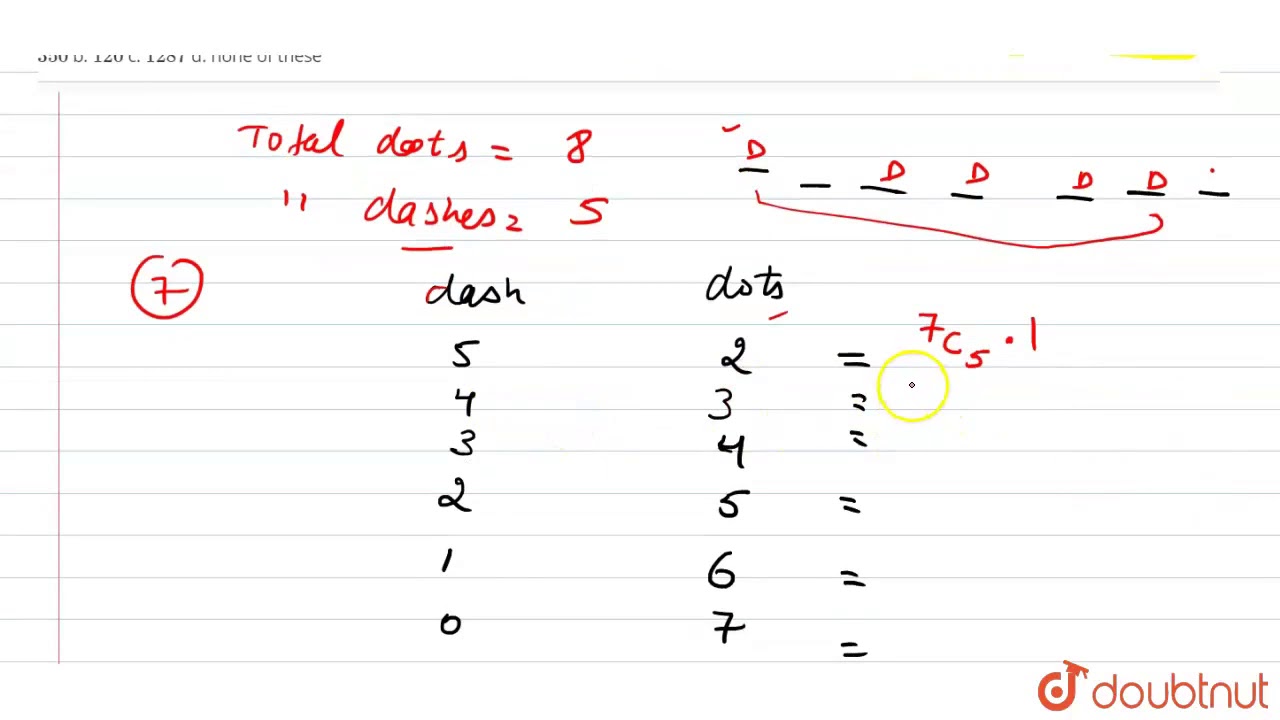 350 b. 120 c. 1287 d. none of these
Total dots = 8
" dashes = 5
D _ D D D D .
7
dash dots
5 2 = ⁷C₅ · 1
4 3 =
3 4 =
2 5 =
1 6 =
0 7 =
doubtnut